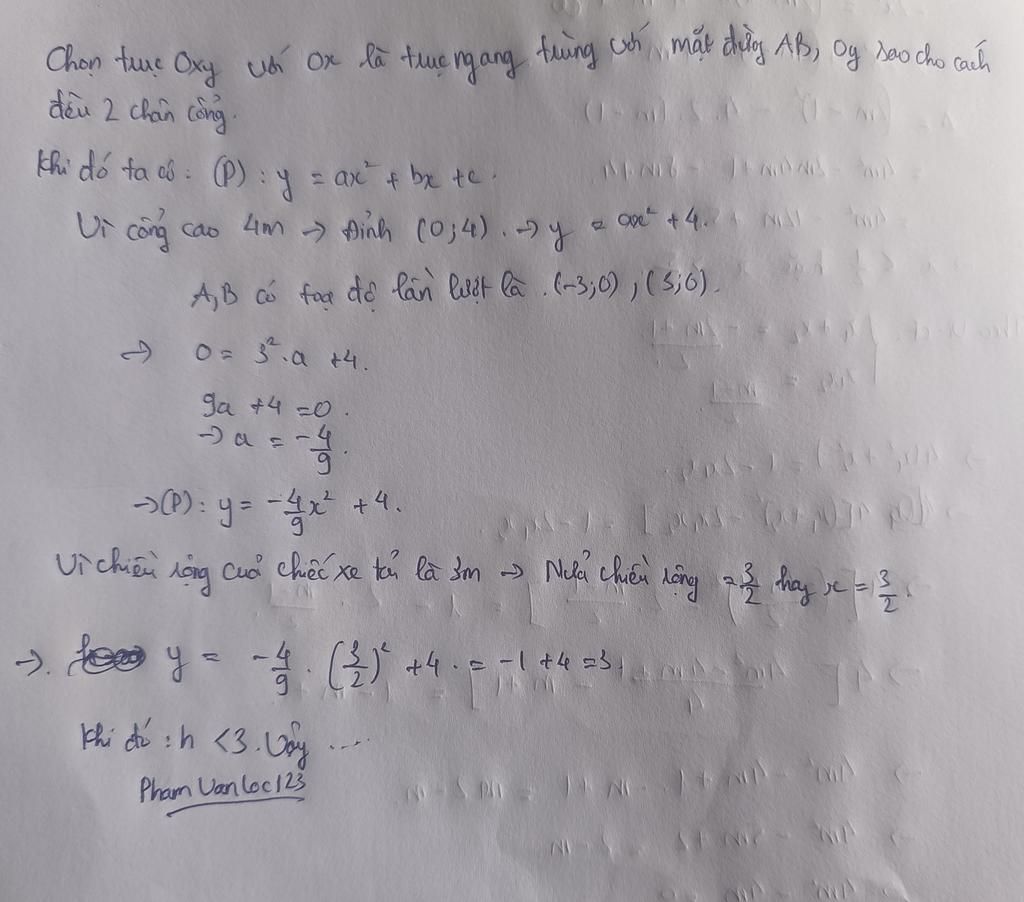 Chọn trục Oxy với Ox là trục ngang trùng với mặt đường AB, Oy sao cho cách
đều 2 chân cổng.
Khi đó ta có: (P): y = ax² + bx + c.
Vì cổng cao 4m → Đỉnh (0;4). → y = ax² + 4.
A, B có toạ độ lần lượt là (-3;0), (3;0).
→ 0 = 3².a + 4.
9a + 4 = 0.
→ a = -4/9.
→ (P): y = -4/9x² + 4.
Vì chiều rộng của chiếc xe tải là 3m → Nửa chiều rộng = 3/2 hay x = 3/2.
→. y = -4/9 . (3/2)² + 4 . = -1 + 4 = 3.
Khi đó: h < 3. Vậy ....
Pham Van Loc 123